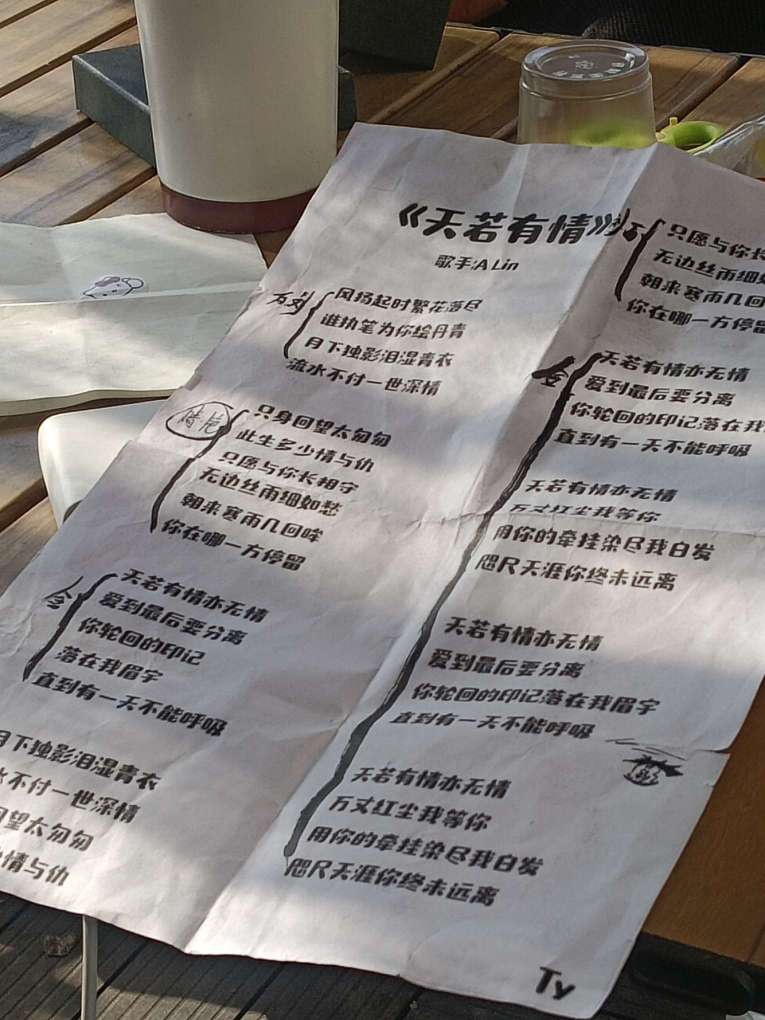 《天若有情》
歌手:A Lin
风扬起时繁花落尽
谁执笔为你绘丹青
月下独影泪湿青衣
流水不付一世深情
只身回望太匆匆
此生多少情与仇
只愿与你长相守
无边丝雨细如愁
朝来寒雨几回哞
你在哪一方停留
合
天若有情亦无情
爱到最后要分离
你轮回的印记
落在我眉宇
直到有一天不能呼吸
月下独影泪湿青衣
水不付一世深情
望太匆匆
情与仇
只愿与你长
无边丝雨细如
朝来寒雨几回
你在哪一方停留
合
天若有情亦无情
爱到最后要分离
你轮回的印记落在我
直到有一天不能呼吸
天若有情亦无情
万丈红尘我等你
用你的牵挂染尽我白发
咫尺天涯你终未远离
天若有情亦无情
爱到最后要分离
你轮回的印记落在我眉宇
直到有一天不能呼吸
天若有情亦无情
万丈红尘我等你
用你的牵挂染尽我白发
咫尺天涯你终未远离
Ty